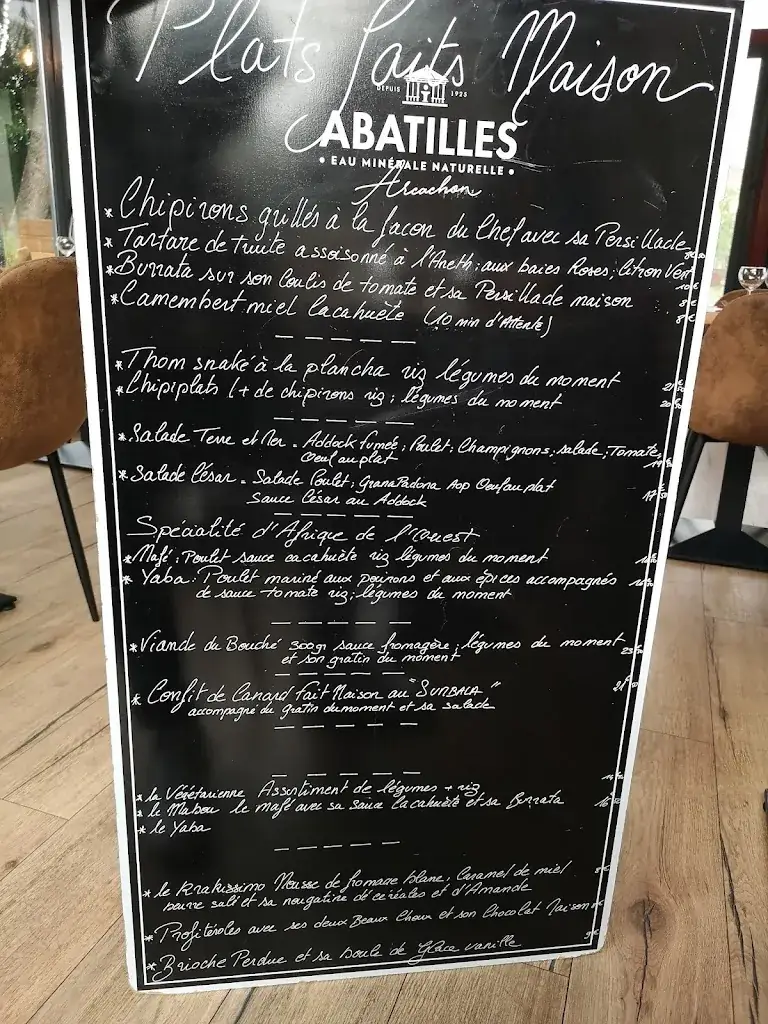 Plats faits Maison
DEPUIS 1925
ABATILLES
• EAU MINÉRALE NATURELLE •
Arcachon
* Chipirons grillés à la façon du Chef avec sa Persillade
* Tartare de truite assoisonné à l'Aneth; aux baies Roses; Citron Vert
* Burrata sur son Coulis de tomate et sa Persillade maison 10€
* Camembert miel Cacahuète (10 min d'Attente) 8€
8€
* Thom snaké à la plancha riz légumes du moment
* Chipiplats (+ de chipirons riz; légumes du moment
* Salade Terre et Mer = Addock fumée; Poulet; Champignons; salade; Tomate,
Oeuf au plat
* Salade César = Salade Poulet; Grana Padona Aop Oeuf au plat
Sauce César au Addock
Spécialité d'Afrique de l'Ouest
* Mafé: Poulet sauce cacahuète riz légumes du moment
* Yaba: Poulet mariné aux poivrons et aux épices accompagnés
de sauce tomate riz; légumes du moment
* Viande du Bouché 300gr sauce fromagère; légumes du moment
et son gratin du moment
* Confit de Canard fait Maison au "SUNBALA"
accompagné du gratin du moment et sa salade
* la Végétarienne Assortiment de légumes + riz
* le Mabou le mafé avec sa sauce Cacahuète et sa Burrata
* le Yaba
* le Krakissimo Mousse de fromage blanc; Caramel de miel
beurre salé et sa nougatine de céréales et d'Amande
* Profiteroles avec ses deux Beaux Choux et son Chocolat Maison
* Brioche Perdue et sa boule de Glace vanille 9€